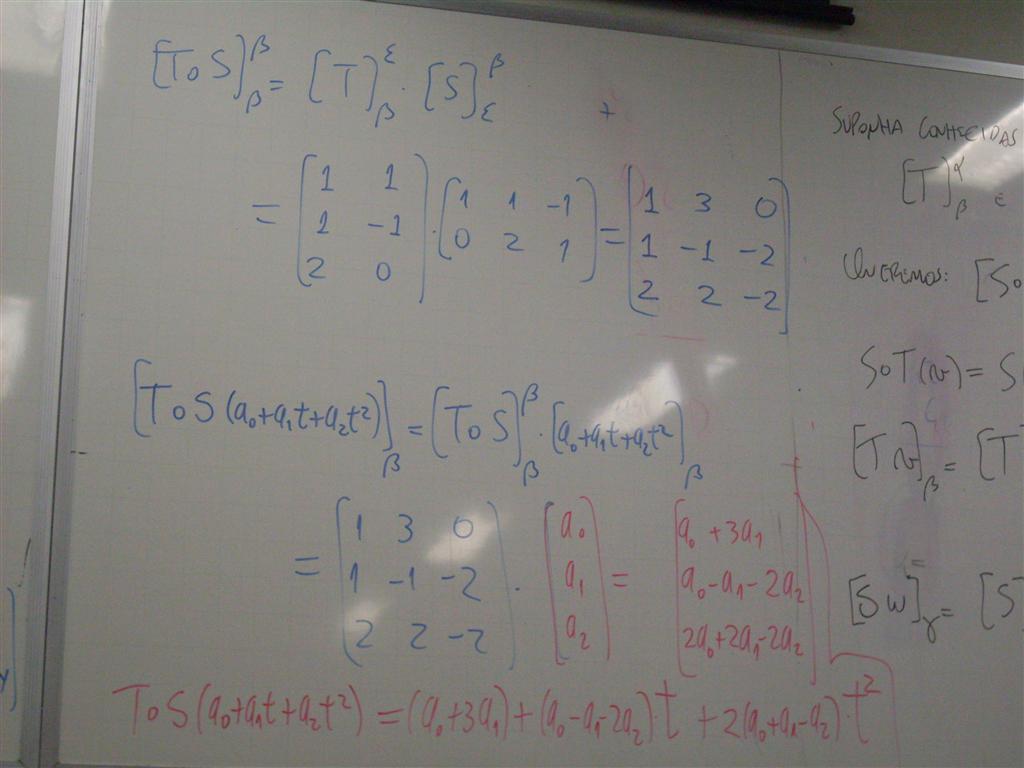 [T∘S]^β_β = [T]^ε_β · [S]^β_ε
= [1 1; 1 -1; 2 0] · [1 1 -1; 0 2 1] = [1 3 0; 1 -1 -2; 2 2 -2]
[T∘S(a₀+a₁t+a₂t²)]_β = [T∘S]^β_β · [a₀+a₁t+a₂t²]_β
= [1 3 0; 1 -1 -2; 2 2 -2] · [a₀; a₁; a₂] = [a₀+3a₁; a₀-a₁-2a₂; 2a₀+2a₁-2a₂]
T∘S(a₀+a₁t+a₂t²) = (a₀+3a₁)+(a₀-a₁-2a₂)·t + 2(a₀+a₁-a₂)·t²
SUPONHA CONHECIDAS
[T]^α_β E
QUEREMOS: [S∘
S∘T(v) = S
[Tv]_β = [T
[Sw]_γ = [S]